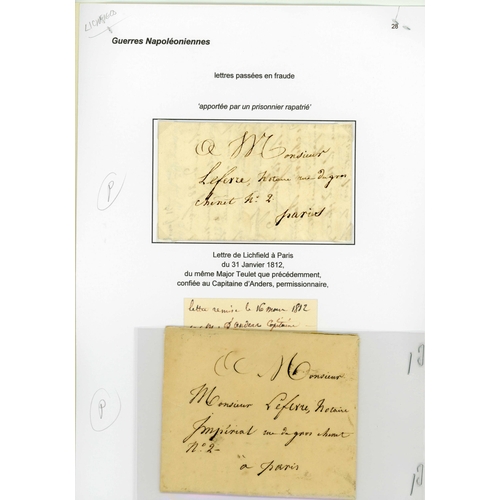 LICHFIELD
28
Guerres Napoléoniennes
lettres passées en fraude
'apportée par un prisonnier rapatrié'
P
A Monsieur
Lefevre, Notaire rue du gros
chenet N.º 2
paris
Lettre de Lichfield à Paris
du 31 Janvier 1812,
du même Major Teulet que précédemment,
confiée au Capitaine d'Anders, permissionnaire,
lettre remise le 16 mars 1812
d'anders Capitaine
P
A Monsieur
Monsieur Lefevre, Notaire
Impérial rue du gros chenet
N.º 2
à paris